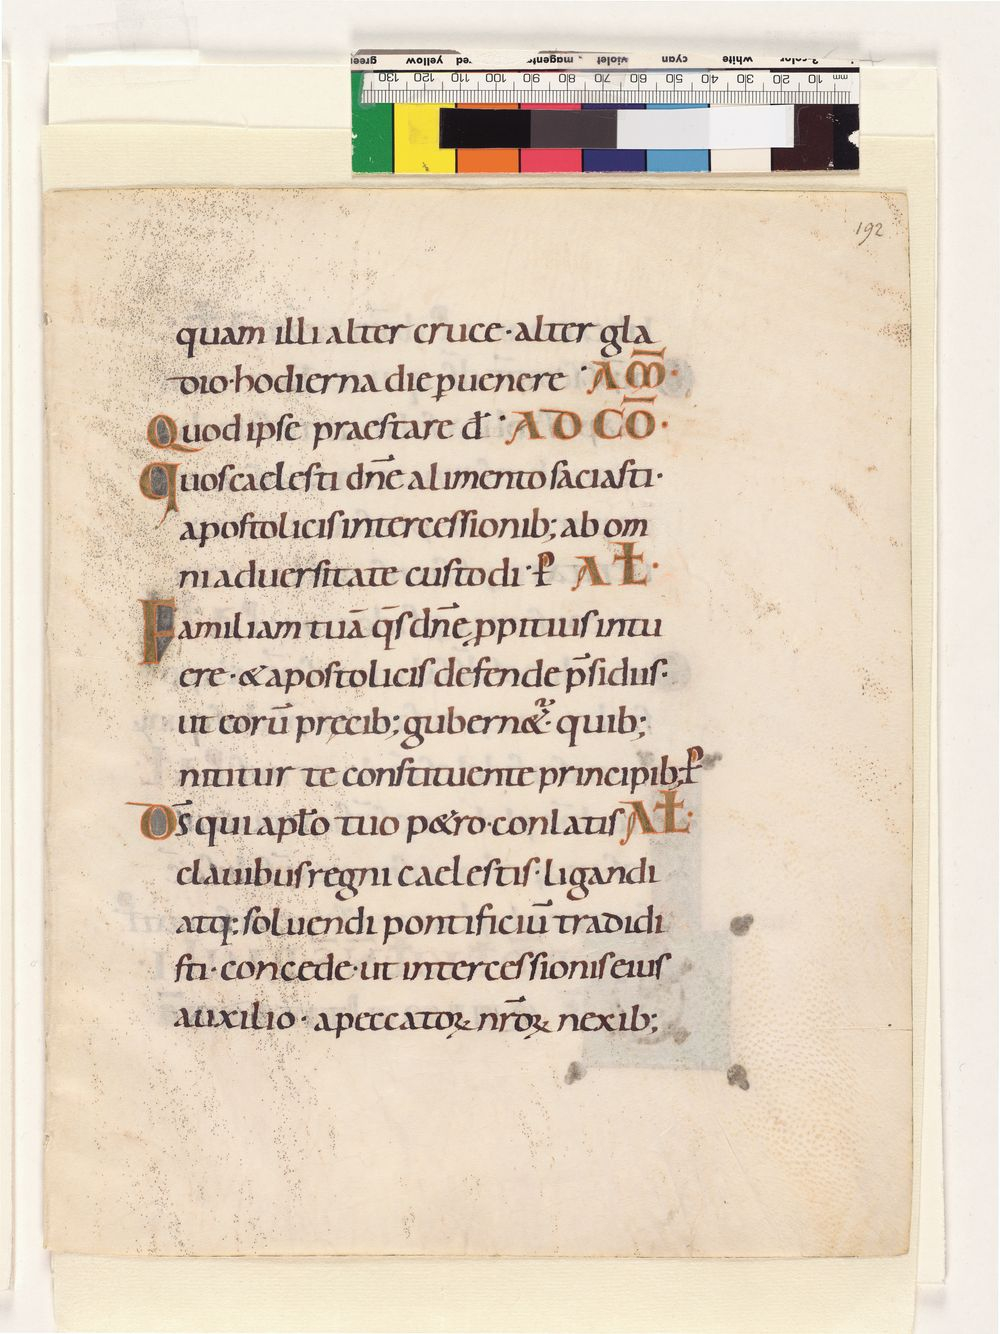 green yellow red magenta violet cyan white 3-color
130 120 110 100 90 80 70 60 50 40 30 20 10 mm
192
quam illi alter cruce · alter gla
dio · hodierna die p̱uenere · AM̄ ·
Quod ipse praestare đ · AD CŌ ·
quos caelesti dn̄e alimento saciasti ·
apostolicis intercessionib; ab om
ni aduersitate custodi · ꝑ AŁ ·
Familiam tuā q̄s dn̄e ꝓpitius intu
ere · & apostolicis defende p̄sidiis ·
ut eorū precib; gubern&ur · quib;
nititur te constituente principib; ꝑ
Ds̄ qui apło tuo p&ro · conlatis AŁ ·
clauibus regni caelestis · ligandi
atq; soluendi pontificiū tradidi
sti · concede · ut intercessionis eius
auxilio · a peccatoꝝ nr̄oꝝ nexib;